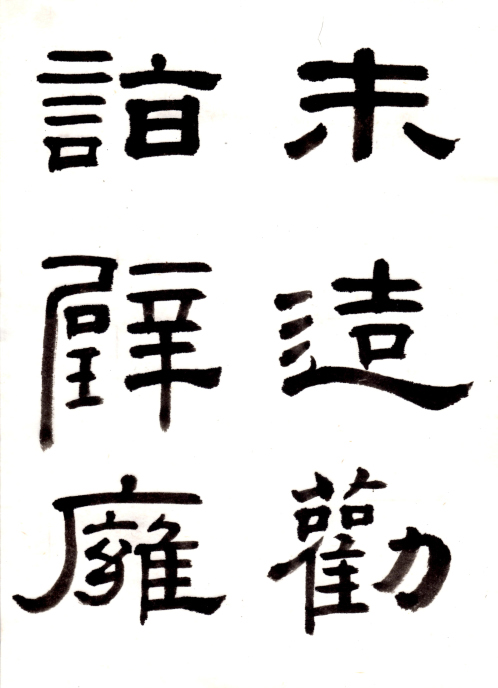 未造勸
詣璧廱